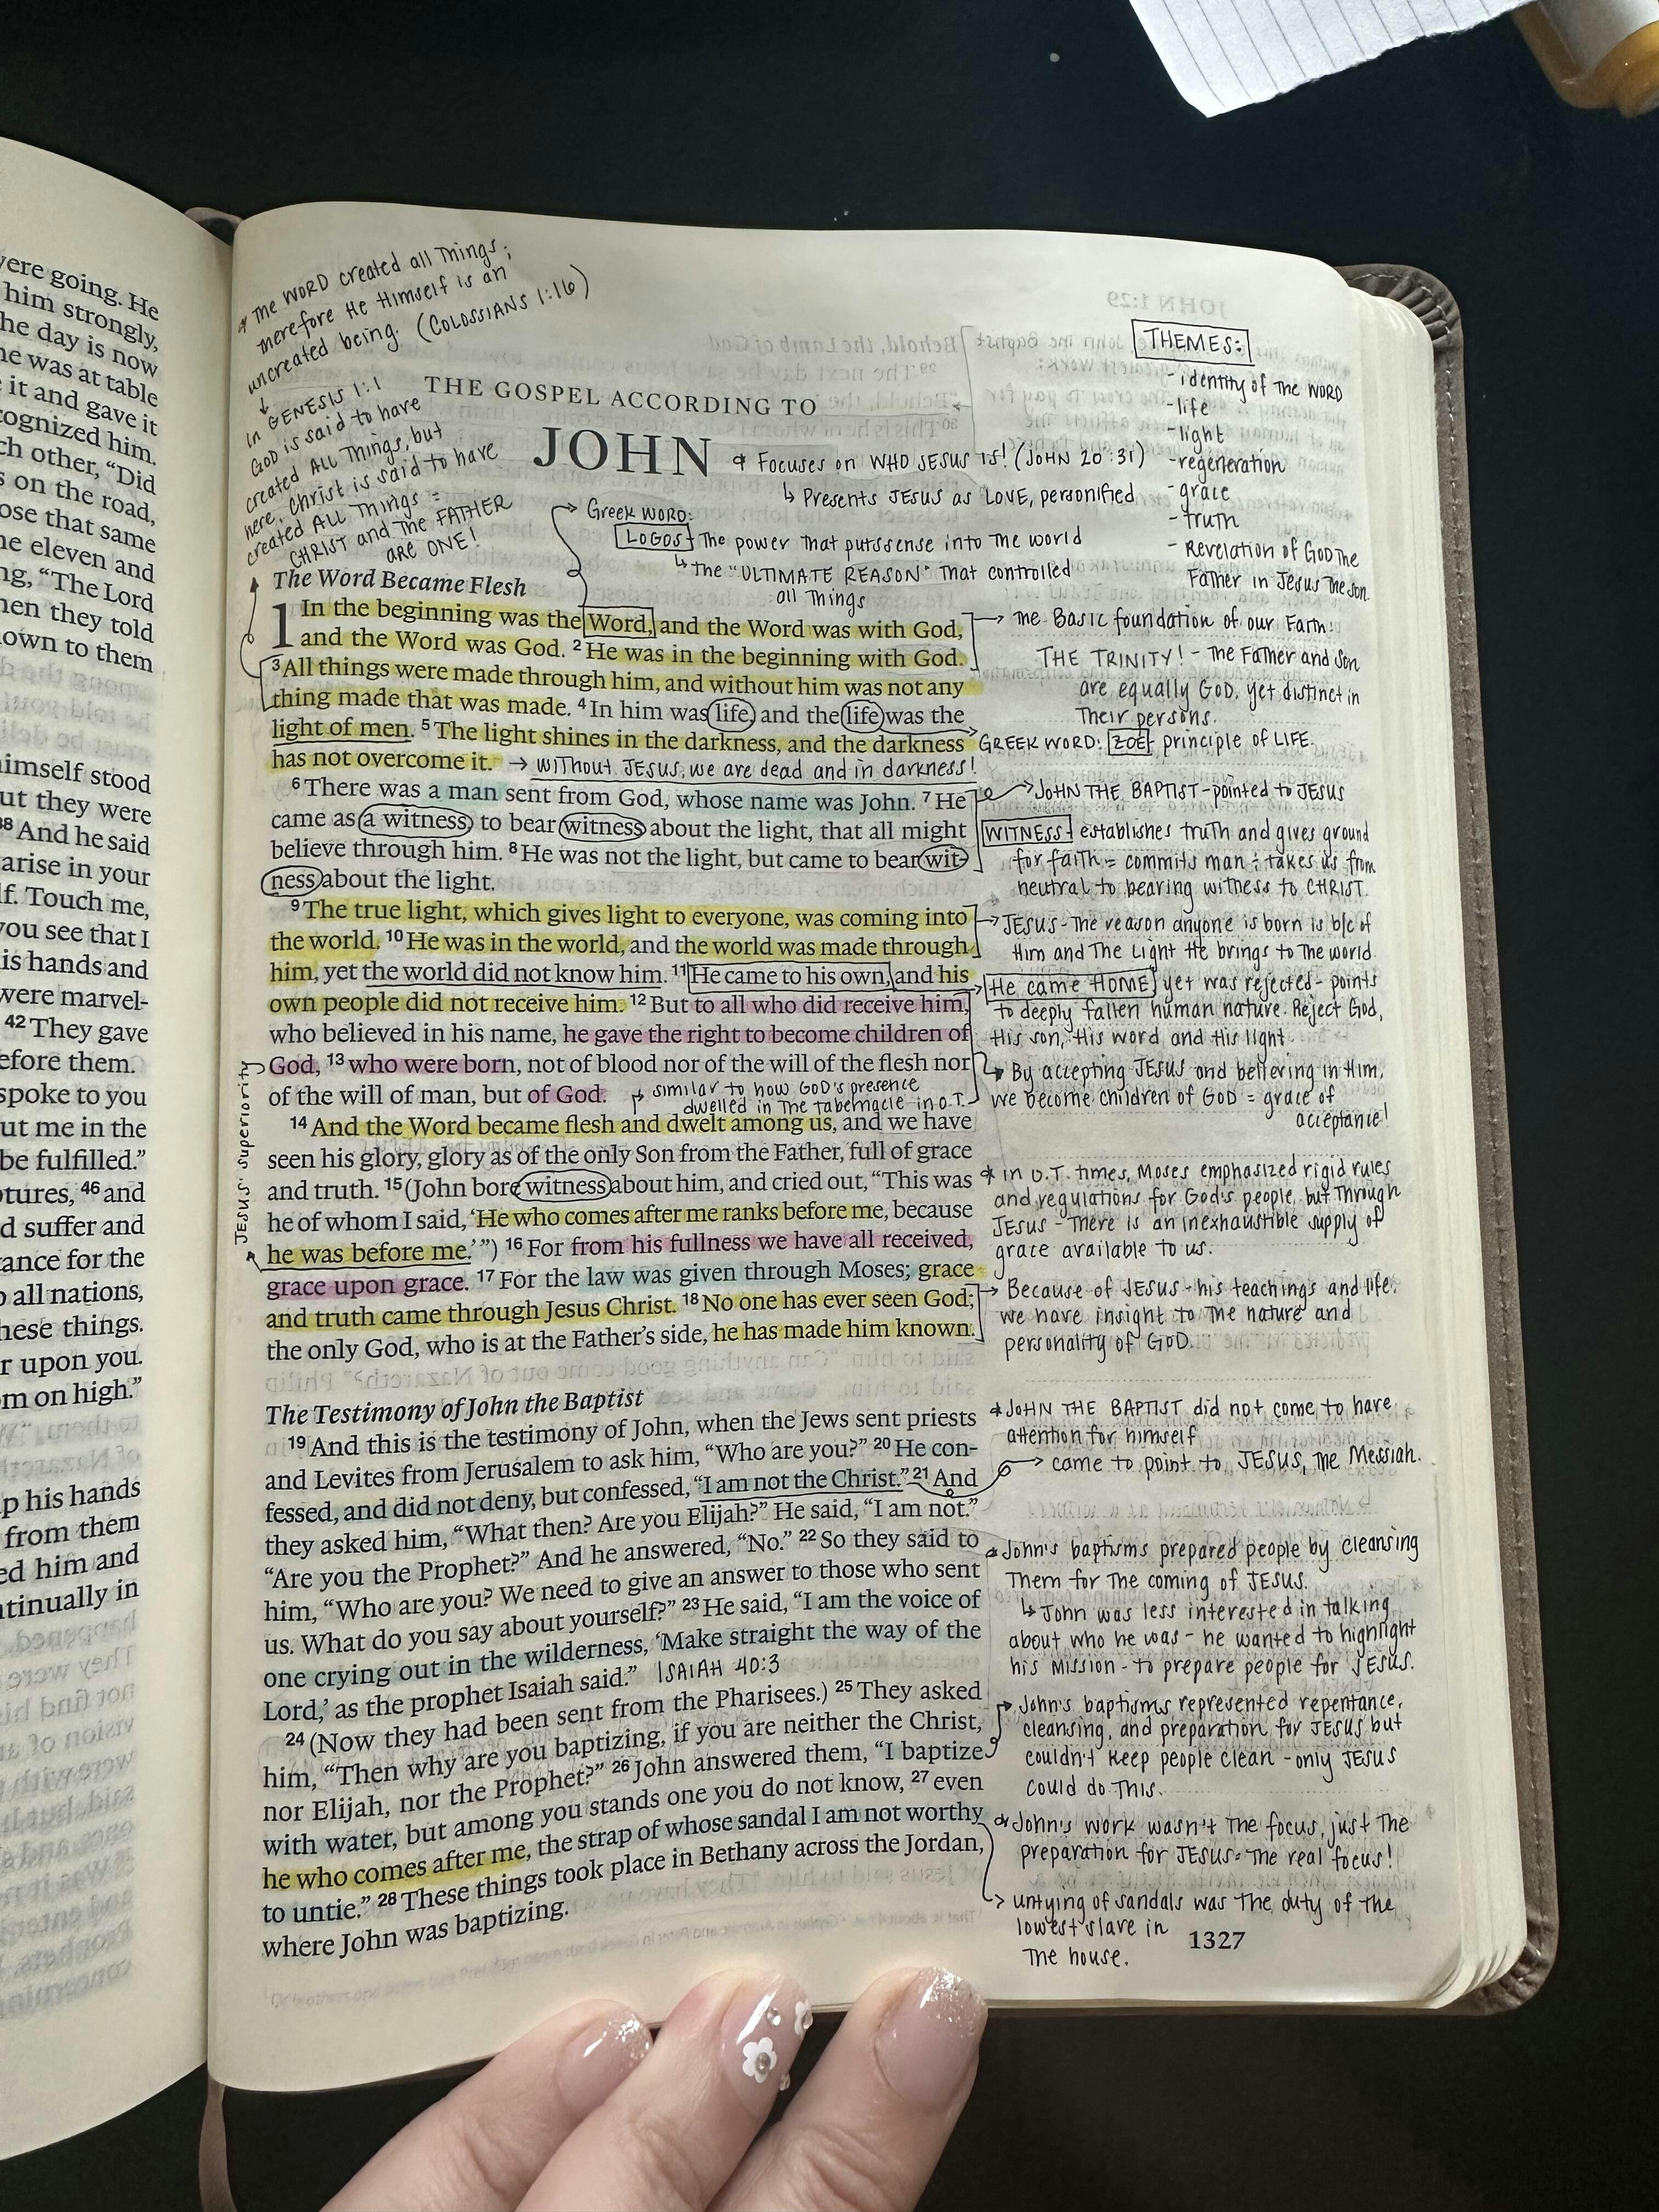 were going. He
him strongly,
he day is now
he was at table
it and gave it
cognized him.
ch other, "Did
s on the road,
ose that same
he eleven and
ng, "The Lord
hen they told
nown to them
himself stood
ut they were
38 And he said
arise in your
lf. Touch me,
you see that I
is hands and
were marvel-
42 They gave
efore them.
spoke to you
ut me in the
be fulfilled."
ptures, 46 and
d suffer and
tance for the
o all nations,
hese things.
r upon you.
m on high."
p his hands
from them
ed him and
ntinually in
The WORD created all Things;
Therefore He Himself is an
uncreated being. (COLOSSIANS 1:16)
↓
In GENESIS 1:1
GOD is said to have
created ALL Things, but
here, Christ is said to have
created ALL Things =
CHRIST and The FATHER
ARE ONE!
THE GOSPEL ACCORDING TO
JOHN
Focuses on WHO JESUS IS! (JOHN 20:31)
↳ Presents JESUS as LOVE, personified
THEMES:
- identity of The WORD
- life
- light
- regeneration
- grace
- truth
- Revelation of GOD The
Father in Jesus The son.
→ Greek WORD:
LOGOS - The power That puts sense into The world
↳ The "ULTIMATE REASON" That controlled
all Things
The Word Became Flesh
1 In the beginning was the Word, and the Word was with God,
and the Word was God. 2 He was in the beginning with God.
3 All things were made through him, and without him was not any
thing made that was made. 4 In him was life, and the life was the
light of men. 5 The light shines in the darkness, and the darkness
has not overcome it. → WITHOUT JESUS, we are dead and in darkness!
6 There was a man sent from God, whose name was John. 7 He
came as a witness, to bear witness about the light, that all might
believe through him. 8 He was not the light, but came to bear wit-
ness about the light.
9 The true light, which gives light to everyone, was coming into
the world. 10 He was in the world, and the world was made through
him, yet the world did not know him. 11 He came to his own, and his
own people did not receive him. 12 But to all who did receive him,
who believed in his name, he gave the right to become children of
God, 13 who were born, not of blood nor of the will of the flesh nor
of the will of man, but of God.
similar to how GOD's presence
dwelled in The tabernacle in O.T.
14 And the Word became flesh and dwelt among us, and we have
seen his glory, glory as of the only Son from the Father, full of grace
and truth. 15 (John bore witness about him, and cried out, "This was
he of whom I said, 'He who comes after me ranks before me, because
he was before me.'") 16 For from his fullness we have all received,
grace upon grace. 17 For the law was given through Moses; grace
and truth came through Jesus Christ. 18 No one has ever seen God;
the only God, who is at the Father's side, he has made him known.
JESUS' superiority
The Testimony of John the Baptist
19 And this is the testimony of John, when the Jews sent priests
and Levites from Jerusalem to ask him, "Who are you?" 20 He con-
fessed, and did not deny, but confessed, "I am not the Christ." 21 And
they asked him, "What then? Are you Elijah?" He said, "I am not."
"Are you the Prophet?" And he answered, "No." 22 So they said to
him, "Who are you? We need to give an answer to those who sent
us. What do you say about yourself?" 23 He said, "I am the voice of
one crying out in the wilderness, 'Make straight the way of the
Lord,' as the prophet Isaiah said." ISAIAH 40:3
24 (Now they had been sent from the Pharisees.) 25 They asked
him, "Then why are you baptizing, if you are neither the Christ,
nor Elijah, nor the Prophet?" 26 John answered them, "I baptize
with water, but among you stands one you do not know, 27 even
he who comes after me, the strap of whose sandal I am not worthy
to untie." 28 These things took place in Bethany across the Jordan,
where John was baptizing.
→ The Basic foundation of our Faith:
THE TRINITY! - The Father and Son
are equally GOD, yet distinct in
Their persons.
GREEK WORD: ZOE - principle of LIFE.
→ JOHN THE BAPTIST - pointed to JESUS
WITNESS - establishes truth and gives ground
for faith = commits man & takes us from
neutral to bearing witness to CHRIST.
→ JESUS - The reason anyone is born is b/c of
Him and The Light He brings to The world.
He came HOME, yet was rejected - points
to deeply fallen human nature. Reject God,
His son, His word and His light.
By accepting JESUS and believing in Him,
we become children of GOD = grace of
acceptance!
in O.T. times, Moses emphasized rigid rules
and regulations for God's people, but Through
JESUS - There is an inexhaustible supply of
grace available to us.
→ Because of JESUS - his teachings and life,
we have insight to The nature and
personality of GOD.
JOHN THE BAPTIST did not come to have
attention for himself
→ came to point to JESUS, The Messiah.
John's baptisms prepared people by cleansing
Them for The coming of JESUS.
↳ John was less interested in talking
about who he was - he wanted to highlight
his Mission - to prepare people for JESUS.
John's baptisms represented repentance,
cleansing, and preparation for JESUS but
couldn't keep people clean - only JESUS
could do This.
John's work wasn't The focus, just The
preparation for JESUS = The real focus!
→ untying of sandals was The duty of The
lowest slave in
The house.
1327